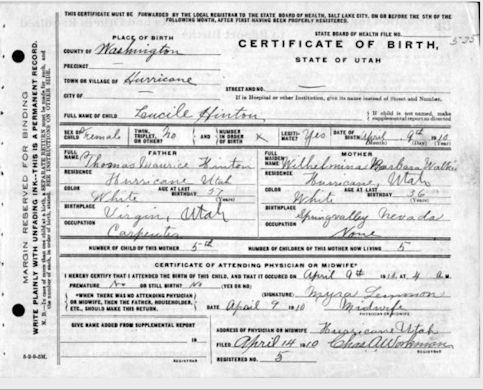 THIS CERTIFICATE MUST BE FORWARDED BY THE LOCAL REGISTRAR TO THE STATE BOARD OF HEALTH, SALT LAKE CITY, ON OR BEFORE THE 5TH OF THE
FOLLOWING MONTH, AFTER FIRST HAVING BEEN PROPERLY REGISTERED.
MARGIN RESERVED FOR BINDING
WRITE PLAINLY WITH UNFADING INK—THIS IS A PERMANENT RECORD.
STATE BOARD OF HEALTH FILE NO.
PLACE OF BIRTH
COUNTY OF Washington
PRECINCT —
TOWN OR VILLAGE OF Hurricane
CITY OF —
CERTIFICATE OF BIRTH,
STATE OF UTAH
STREET AND NO. —
If in Hospital or other Institution, give its name instead of Street and Number.
FULL NAME OF CHILD Loucile Hinton
If child is not named, make supplemental report as directed
SEX OF CHILD Female TWIN, TRIPLET, OR OTHER? No AND NUMBER IN ORDER OF BIRTH x LEGITIMATE? Yes DATE OF BIRTH April 9th 1910
(Month) (Day) (Year)
FATHER
FULL NAME Thomas Maurice Hinton
RESIDENCE Hurricane Utah
COLOR White AGE AT LAST BIRTHDAY 37 (Years)
BIRTHPLACE Virgin, Utah
OCCUPATION Carpenter
MOTHER
FULL MAIDEN NAME Wilhelmina Barbara
RESIDENCE Hurricane, Utah
COLOR White AGE AT LAST BIRTHDAY 36 (Years)
BIRTHPLACE Springvalley Nevada
OCCUPATION None
NUMBER OF CHILD OF THIS MOTHER 5th NUMBER OF CHILDREN OF THIS MOTHER NOW LIVING 5
CERTIFICATE OF ATTENDING PHYSICIAN OR MIDWIFE
I HEREBY CERTIFY THAT I ATTENDED THE BIRTH OF THIS CHILD, AND THAT IT OCCURED ON April 9th 1910, AT 4 a M.
PREMATURE No OR STILL BIRTH? No (YES OR NO)
"WHEN THERE WAS NO ATTENDING PHYSICIAN OR MIDWIFE, THEN THE FATHER, HOUSEHOLDER, ETC., SHOULD MAKE THIS RETURN.
(SIGNATURE) Myra Lemmon
DATE April 9 1910 Midwife
PHYSICIAN OR MIDWIFE
GIVE NAME ADDED FROM SUPPLEMENTAL REPORT
ADDRESS OF PHYSICIAN OR MIDWIFE Hurricane Utah
FILED April 14 1910 Chas. A. Workman
REGISTRAR
REGISTERED NO. 5
REGISTRAR